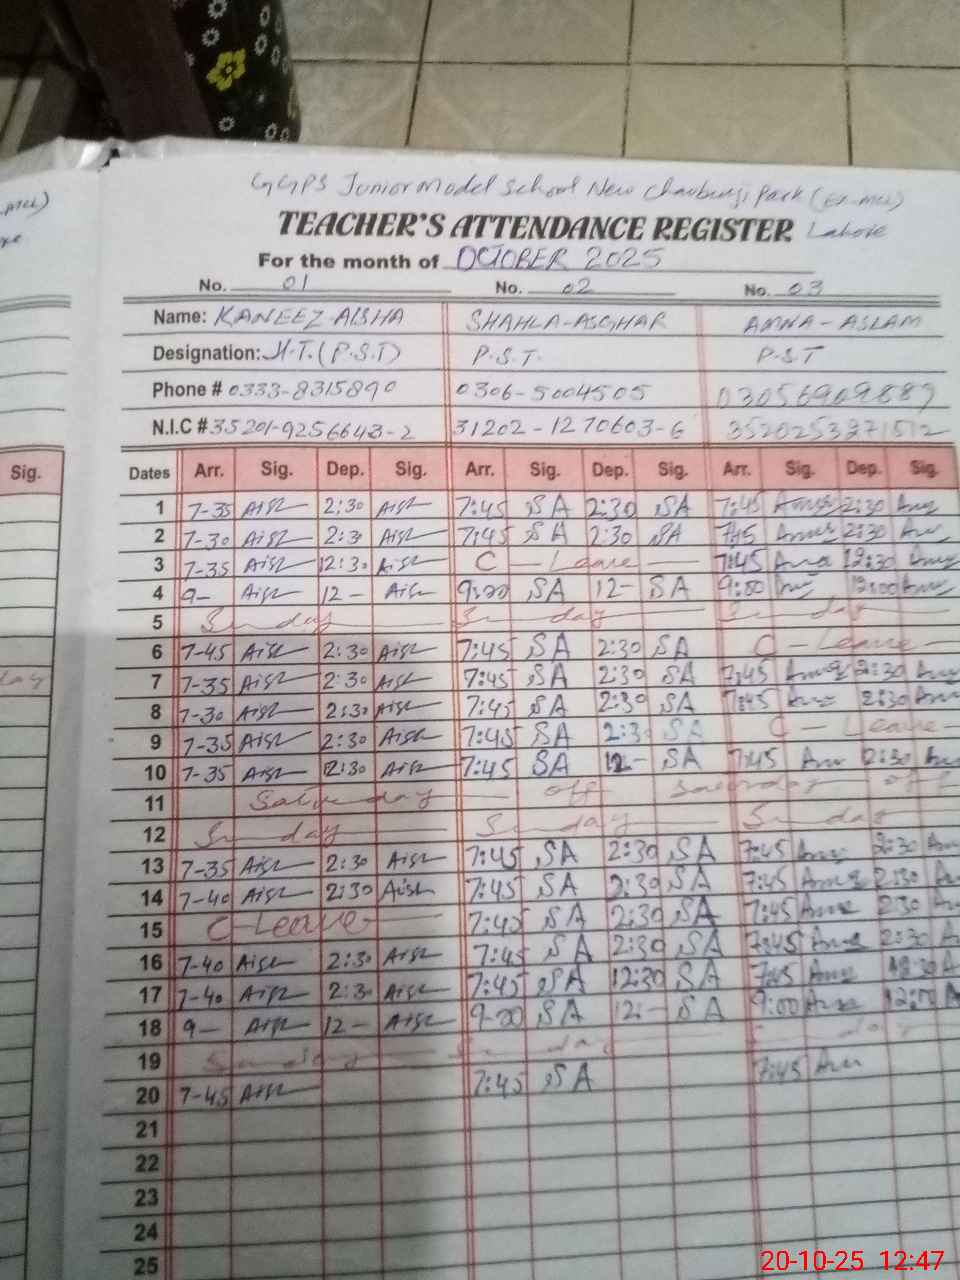 GGPS Junior Model School New Chauburji Park (Ex-MCL)
TEACHER'S ATTENDANCE REGISTER Lahore
For the month of OCTOBER 2025
No. 01 No. 02 No. 03
Name: KANEEZ-AISHA SHAHLA-ASGHAR AMNA-ASLAM
Designation: H.T.(P.S.T) P.S.T. P.S.T
Phone # 0333-8315890 0306-5004505 03056909887
N.I.C # 35201-9256643-2 31202-1270603-6
Sig. Dates Arr. Sig. Dep. Sig. Arr. Sig. Dep. Sig. Arr. Sig. Dep. Sig.
1 7-35 Aish 2:30 Aish 7:45 SA 2:30 SA 7:45 2:30
2 7-30 Aish 2:3 Aish 7:45 SA 2:30 SA 745 2:30
3 7-35 Aish 12:30 Aish C - Leave 7:45 12:30
4 9- Aish 12- Aish 9:00 SA 12- SA 9:00 12:00
5 Sunday Sunday Sunday
6 7-45 Aish 2:30 Aish 7:45 SA 2:30 SA C - Leave
7 7-35 Aish 2:30 Aish 7:45 SA 2:30 SA 7:45 2:30
8 7-30 Aish 2:30 Aish 7:45 SA 2:30 SA 7:45 2:30
9 7-35 Aish 2:30 Aish 7:45 SA 2:3 SA C - Leave
10 7-35 Aish 2:30 Aish 7:45 SA 12- SA 7:45 2:30
11 Saturday off Saturday off
12 Sunday Sunday Sunday
13 7-35 Aish 2:30 Aish 7:45 SA 2:30 SA 7:45 2:30
14 7-40 Aish 2:30 Aish 7:45 SA 2:30 SA 7:45 2:30
15 C-Leave 7:45 SA 2:30 SA 7:45 2:30
16 7-40 Aish 2:30 Aish 7:45 SA 2:30 SA 7:45 2:30
17 7-40 Aish 2:30 Aish 7:45 SA 12:30 SA 7:45 12:30
18 9- Aish 12- Aish 9-00 SA 12:- SA 9:00 12:00
19 Sunday Sunday
20 7-45 Aish 7:45 SA 7:45
21
22
23
24
25
20-10-25 12:47